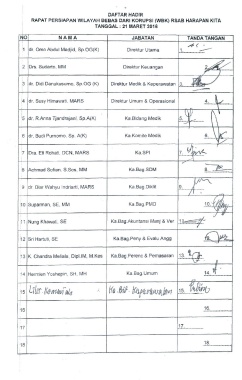 DAFTAR HADIR
RAPAT PERSIAPAN WILAYAH BEBAS DARI KORUPSI (WBK) RSAB HARAPAN KITA
TANGGAL : 21 MARET 2018
NO NAMA JABATAN TANDA TANGAN
1 dr. Didi Abdul Madjid, Sp OG(K) Direktur Utama 1.
2 Drs. Sudarto, MM Direktur Keuangan 2.
3 dr. Didi Danukusumo, Sp OG (K) Direktur Medik & Keperawatan 3.
4 dr. Susy Himawati, MARS Direktur Umum & Operasional 4.
5 dr. R.Arma Tjandrajani, Sp A(K) Ka.Bidang Medik 5.
6 dr. Budi Purnomo, Sp. A(K) Ka.Komite Medik 6.
7 Dra. Eti Rohati, DCN, MARS Ka.SPI 7.
8 Achmad Sofian, S.Sos, MM Ka.Bag SDM 8.
9 dr. Dwi Wahyu Indriati, MARS Ka.Bag Diklit 9.
10 Suparman, SE, MM Ka.Bag PMD 10.
11 Nung Khawati, SE Ka.Bag Akuntansi Manj & Ver 11.
12 Sri Hartuti, SE Ka.Bag Peny & Evalu Angg 12.
13 K. Chandra Meilala, DipIM, M.Kes Ka.Bag Perenc & Pemasaran 13.
14 Herman Yoshepin, SH, MH Ka.Bag Umum 14.
15 Ka. Bid Keperawatan 15.
16 16.
17 17.
18 18.